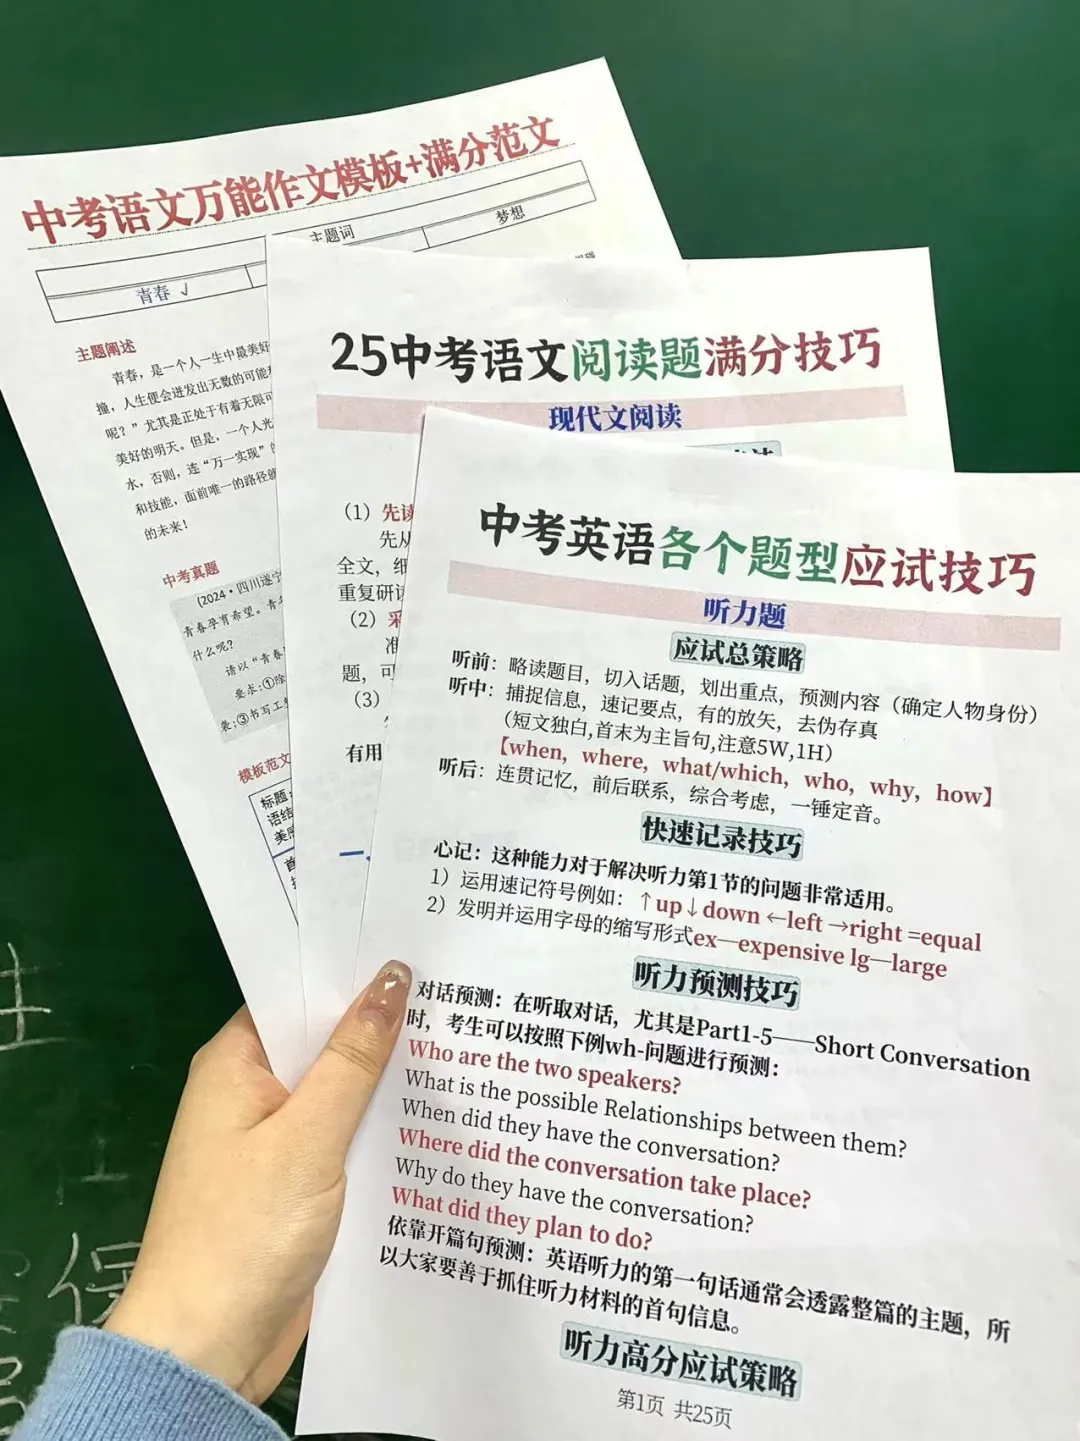 中考语文万能作文模板+满分范文
主题词
青春 √
梦想
主题阐述
青春，是一个人一生中最美好
撞，人生便会迸发出无数的可能
呢？”尤其是正处于有着无限可
美好的明天。但是，一个人光
水，否则，连“万一实现”的
和技能，面前唯一的路径就
的未来！
中考真题
(2024·四川遂宁
青春孕育希望。青年
什么呢？
请以“青春
要求:①除
袭;③书写工整
模板范文
标题
语结
美感
首
25中考语文阅读题满分技巧
现代文阅读
（1）先读
先从
全文，细
重复研读
（2）采
准
题，可
（3）
有用
中考英语各个题型应试技巧
听力题
应试总策略
听前：略读题目，切入话题，划出重点，预测内容（确定人物身份）
听中：捕捉信息，速记要点，有的放矢，去伪存真
（短文独白,首末为主旨句,注意5W,1H）
【when，where，what/which，who，why，how】
听后：连贯记忆，前后联系，综合考虑，一锤定音。
快速记录技巧
心记：这种能力对于解决听力第1节的问题非常适用。
1）运用速记符号例如：↑up↓down ←left →right =equal
2）发明并运用字母的缩写形式ex—expensive lg—large
听力预测技巧
对话预测：在听取对话，尤其是Part1-5——Short Conversation
时，考生可以按照下例wh-问题进行预测：
Who are the two speakers?
What is the possible Relationships between them?
When did they have the conversation?
Where did the conversation take place?
Why do they have the conversation?
What did they plan to do?
依靠开篇句预测：英语听力的第一句话通常会透露整篇的主题，所
以大家要善于抓住听力材料的首句信息。
听力高分应试策略
第1页 共25页